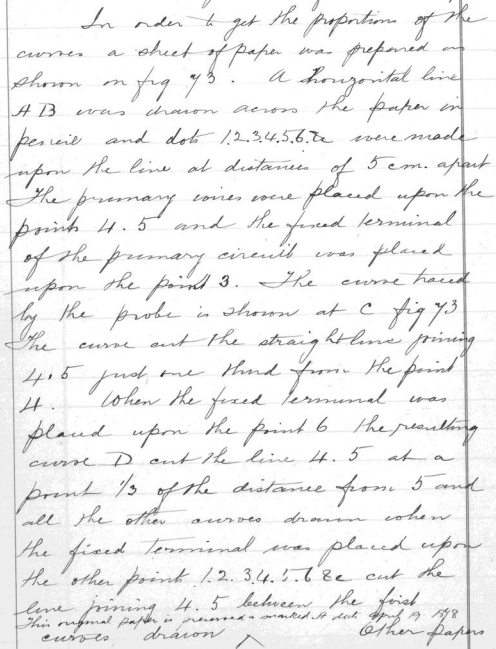 In order to get the proportions of the
curves a sheet of paper was prepared as
shown on fig 73. A horizontal line
AB was drawn across the paper in
pencil and dots 1.2.3.4.5.6.&c were made
upon the line at distances of 5 cm. apart
The primary wires were placed upon the
points 4.5 and the fixed terminal
of the primary circuit was placed
upon the point 3. The curve traced
by the probe is shown at C fig 73
The curve cut the straight line joining
4.5 just one third from the point
4. When the fixed terminal was
placed upon the point 6 the resulting
curve D cut the line 4.5 at a
point 1/3 of the distance from 5 and
all the other curves drawn when
the fixed terminal was placed upon
the other point 1.2.3.4.5.6 &c cut the
line joining 4.5 between the first
This original paper is preserved & marked A date April 19 1898
curves drawn Other papers